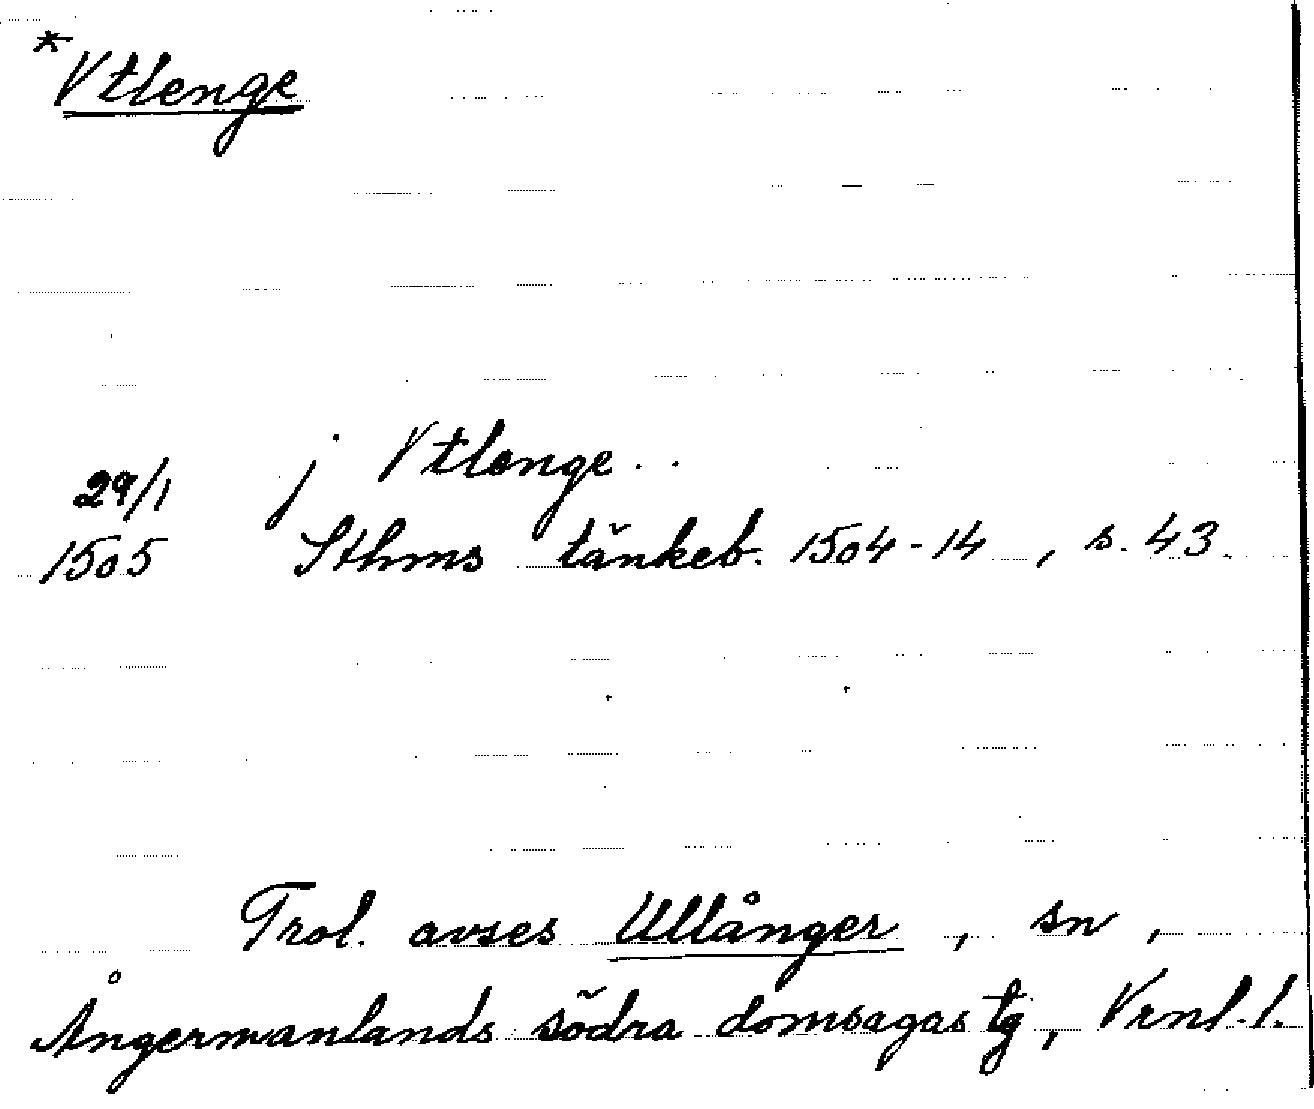 *Vtlenge
29/1 j Vtlenge..
1505 Sthms tänkeb. 1504-14, s. 43.
Trol. avses Ullånger, sn,
Ångermanlands södra domsagas tg, Vrnl.l.